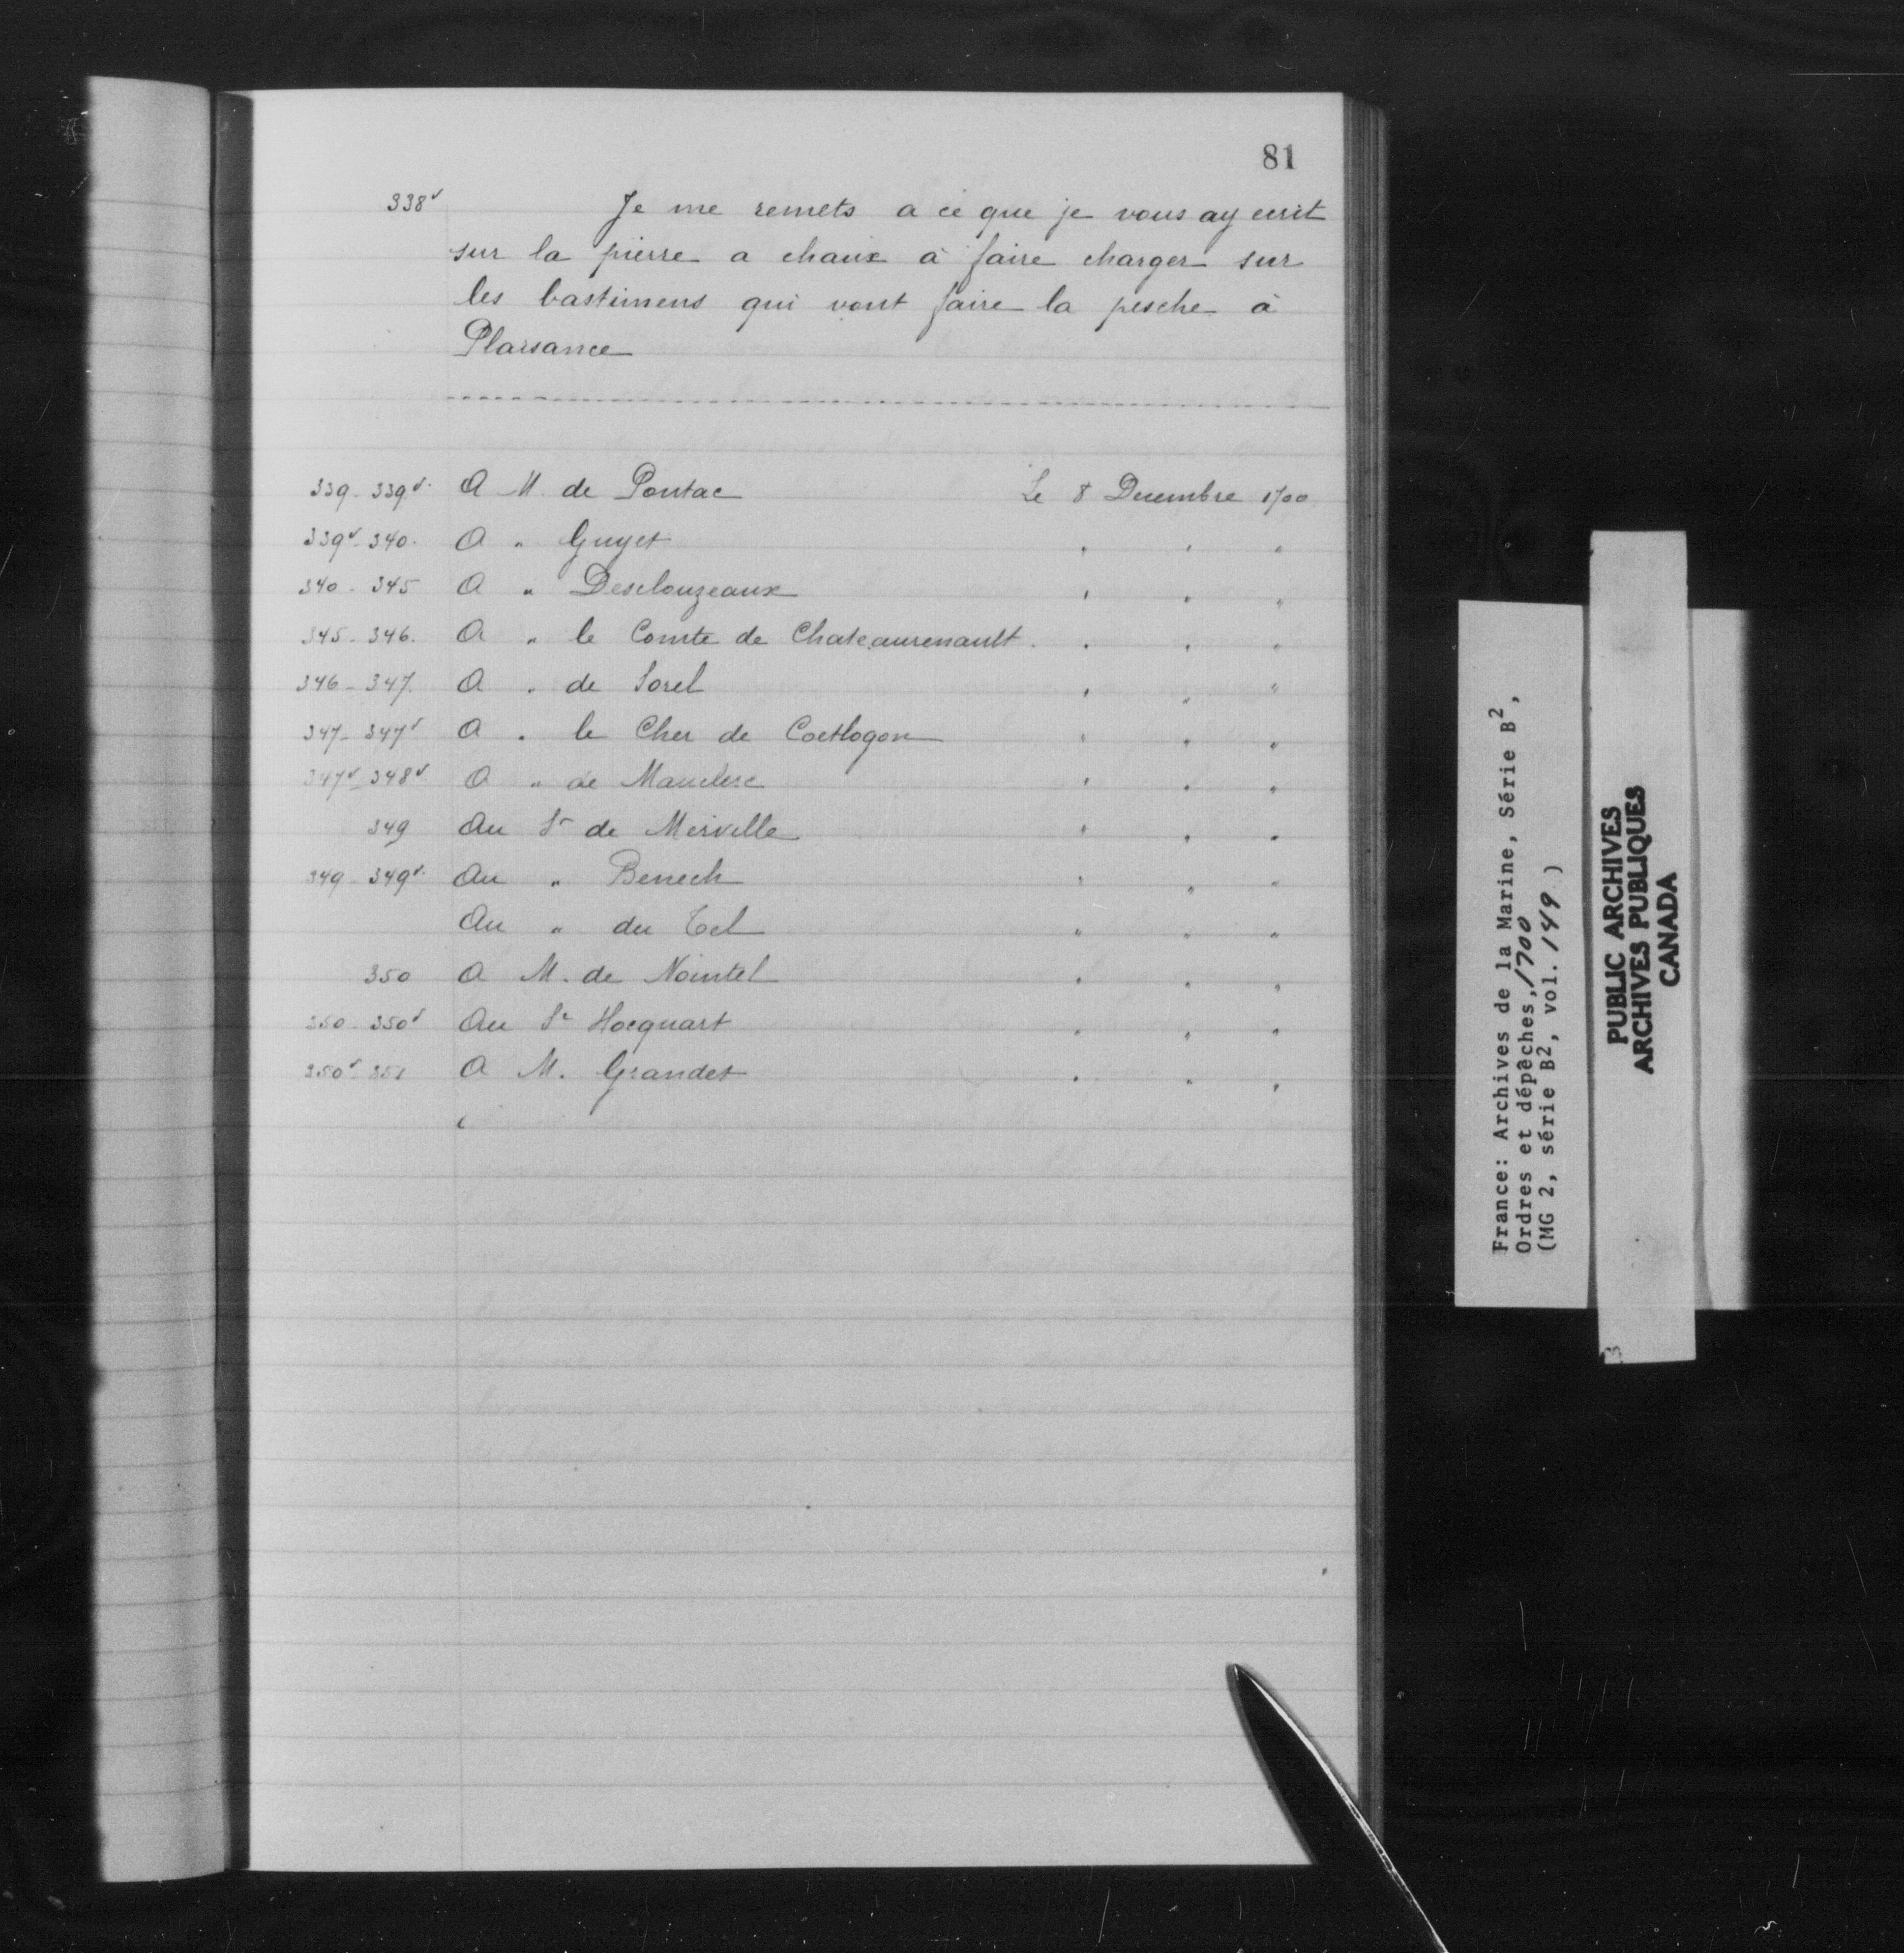 81
338v Je me remets a ce que je vous ay ecrit
sur la pierre a chaux à faire charger sur
les bastimens qui vont faire la pesche à
Plaisance
339 - 339v. A M. de Pontac Le 8 Decembre 1700
339v - 340. A " Guyet " " "
340 - 345 A " Desclouzeaux " " "
345 - 346. A " le Comte de Chateaurenault. " " "
346 - 347. A " de Sorel " " "
347 - 347v A " le Cher de Coetlogon " " "
347v - 348v A " de Mauclerc " " "
349 Au Sr de Merville " " "
349 - 349v. Au " Benech " " "
Au " du Tel " " "
350 A M. de Nointel " " "
350 - 350v Au Sr Hocquart " " "
350v - 351 A M. Grandet " " "
France: Archives de la Marine, Série B2,
Ordres et dépêches, 1700
(MG 2, série B2, vol. 149)
PUBLIC ARCHIVES
ARCHIVES PUBLIQUES
CANADA